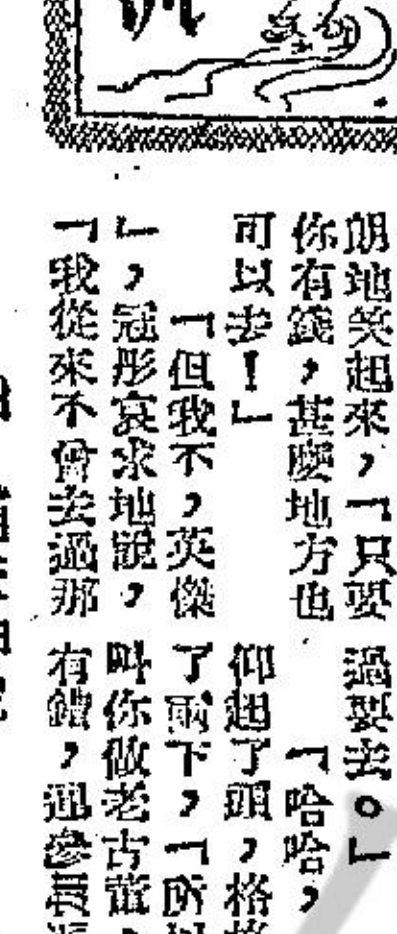 朗地笑起來，「只要
你有錢，甚麼地方也
可以去！」
「但我不，英傑
」，冠彤哀求地說，
「我從來不曾去過那
過要去。」
「哈哈，
仰起了頭，格格
了兩下，「所以
叫你做老古董，
有錢，連參